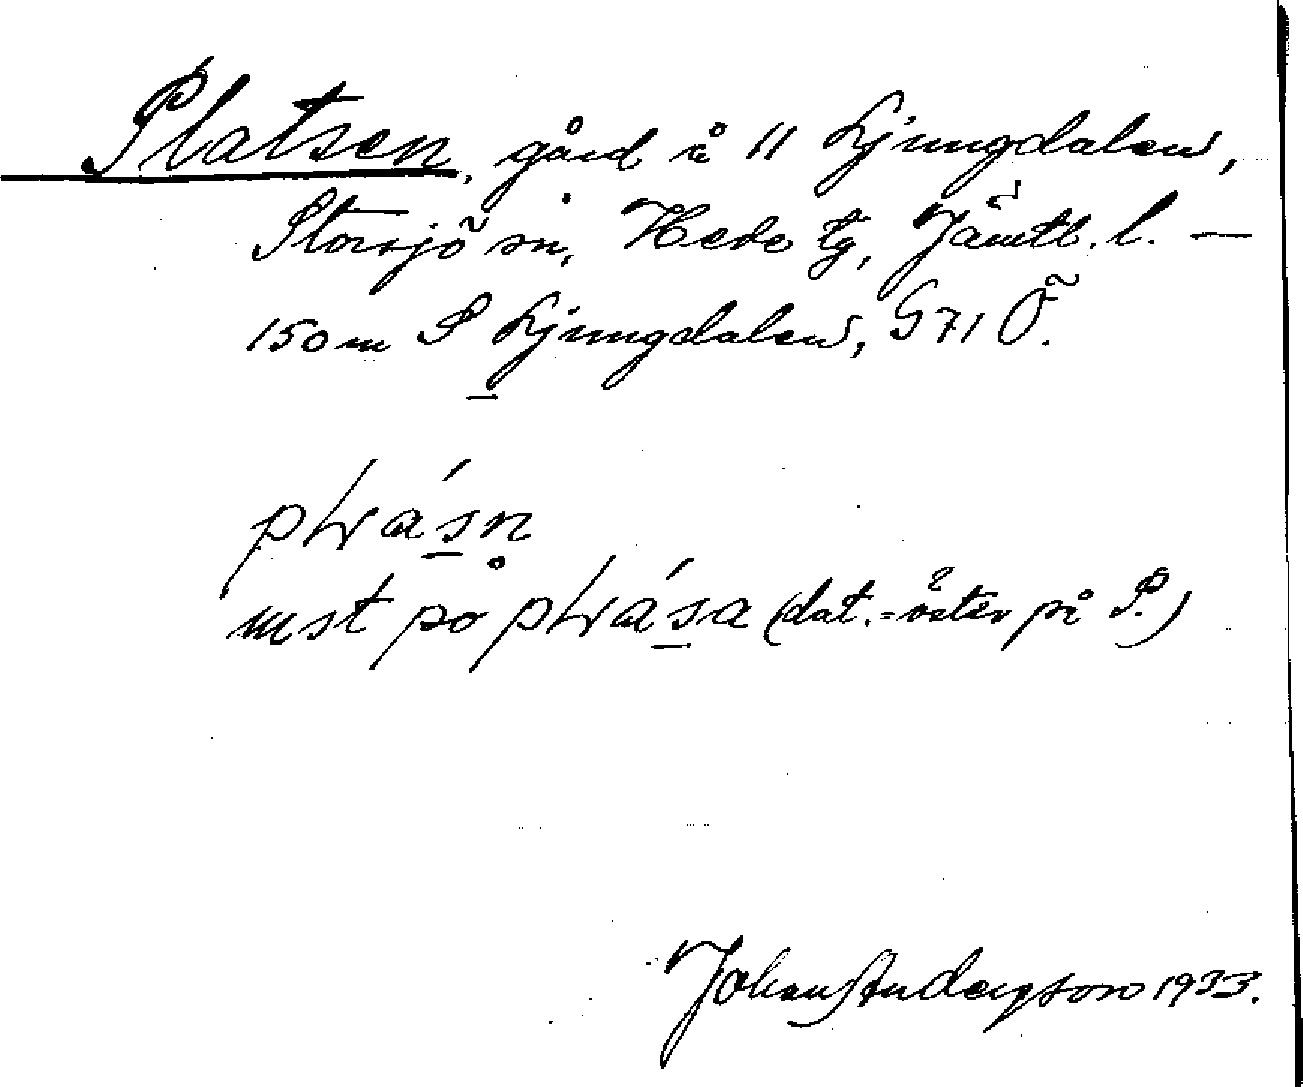 Platsen, gård å 11 Ljungdalen,
Storsjö sn, Hede tg, Jämtl. l. —
150 m S Ljungdalen, G 71 Ö.
plasn̥
po plasa (dat. = öster på P.)
Johan Anderzson 1933.